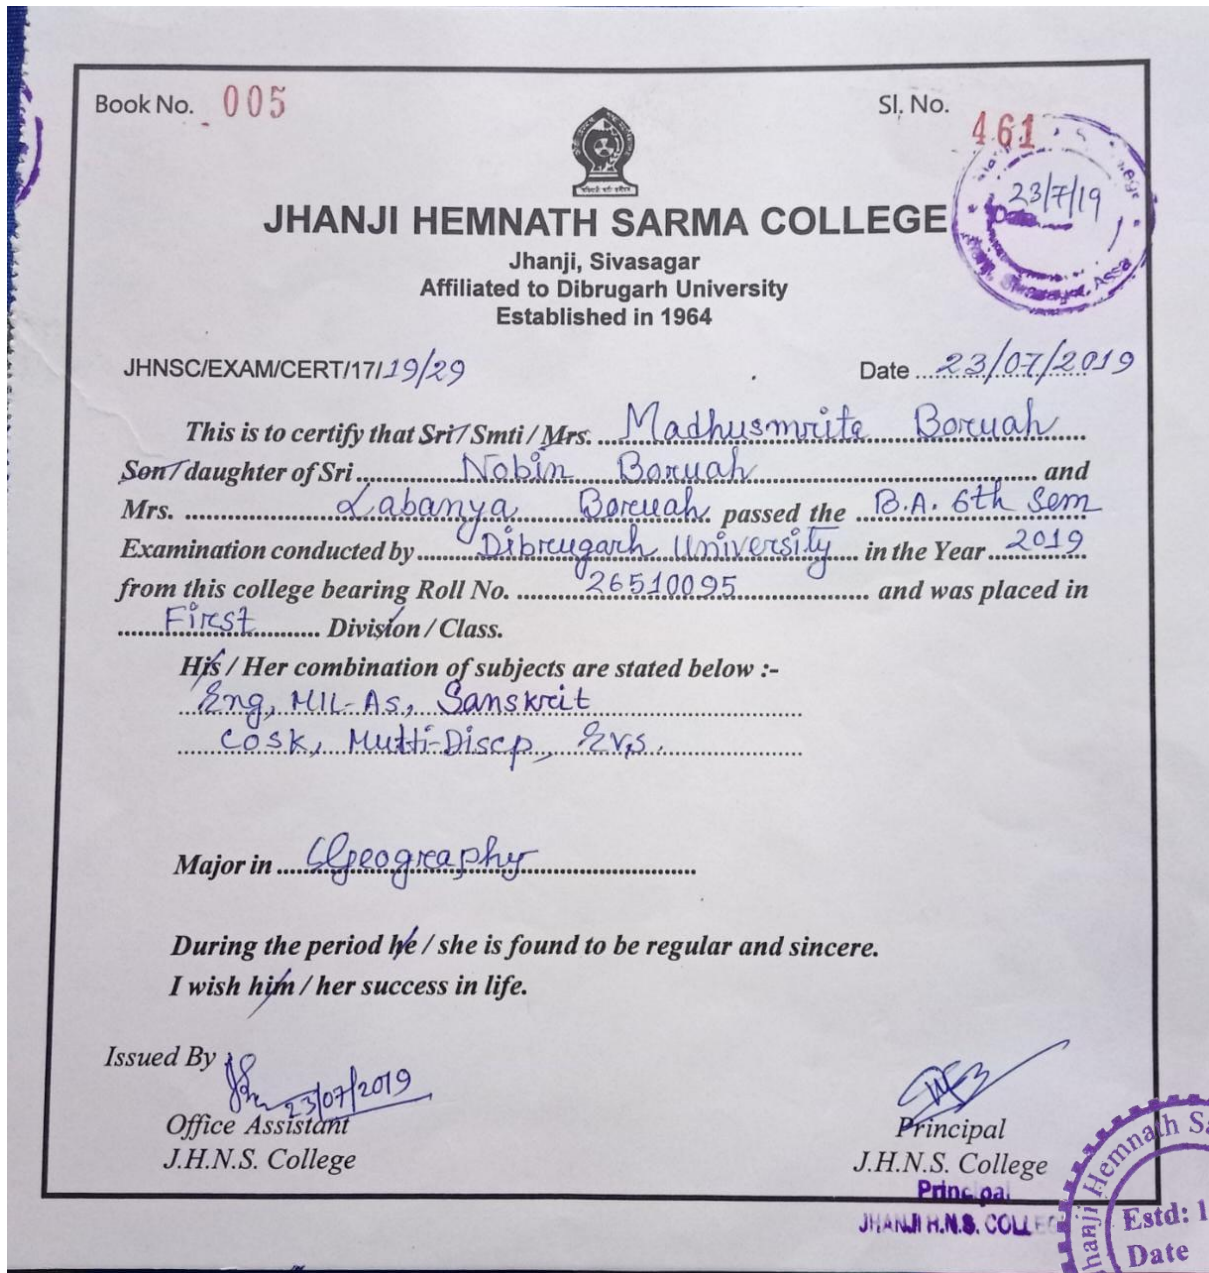 Book No. 005
Sl. No. 461
23/7/19
Date
JHANJI HEMNATH SARMA COLLEGE
Jhanji, Sivasagar
Affiliated to Dibrugarh University
Established in 1964
JHNSC/EXAM/CERT/17/19/29
Date 23/07/2019
This is to certify that Sri / Smti / Mrs. Madhusmrita Boruah
Son / daughter of Sri Nobin Boruah and
Mrs. Labanya Boruah passed the B.A. 6th Sem
Examination conducted by Dibrugarh University in the Year 2019
from this college bearing Roll No. 26510095 and was placed in
First Division / Class.
His / Her combination of subjects are stated below :-
Eng, MIL-As, Sanskrit
COSK, Mutti-Discp, Evs.
Major in Geography
During the period he / she is found to be regular and sincere.
I wish him / her success in life.
Issued By
23/07/2019
Office Assistant
J.H.N.S. College
Principal
J.H.N.S. College
Principal
JHANJI H.N.S. COLLE
hanji Hemnath Sa
Estd: 1
Date